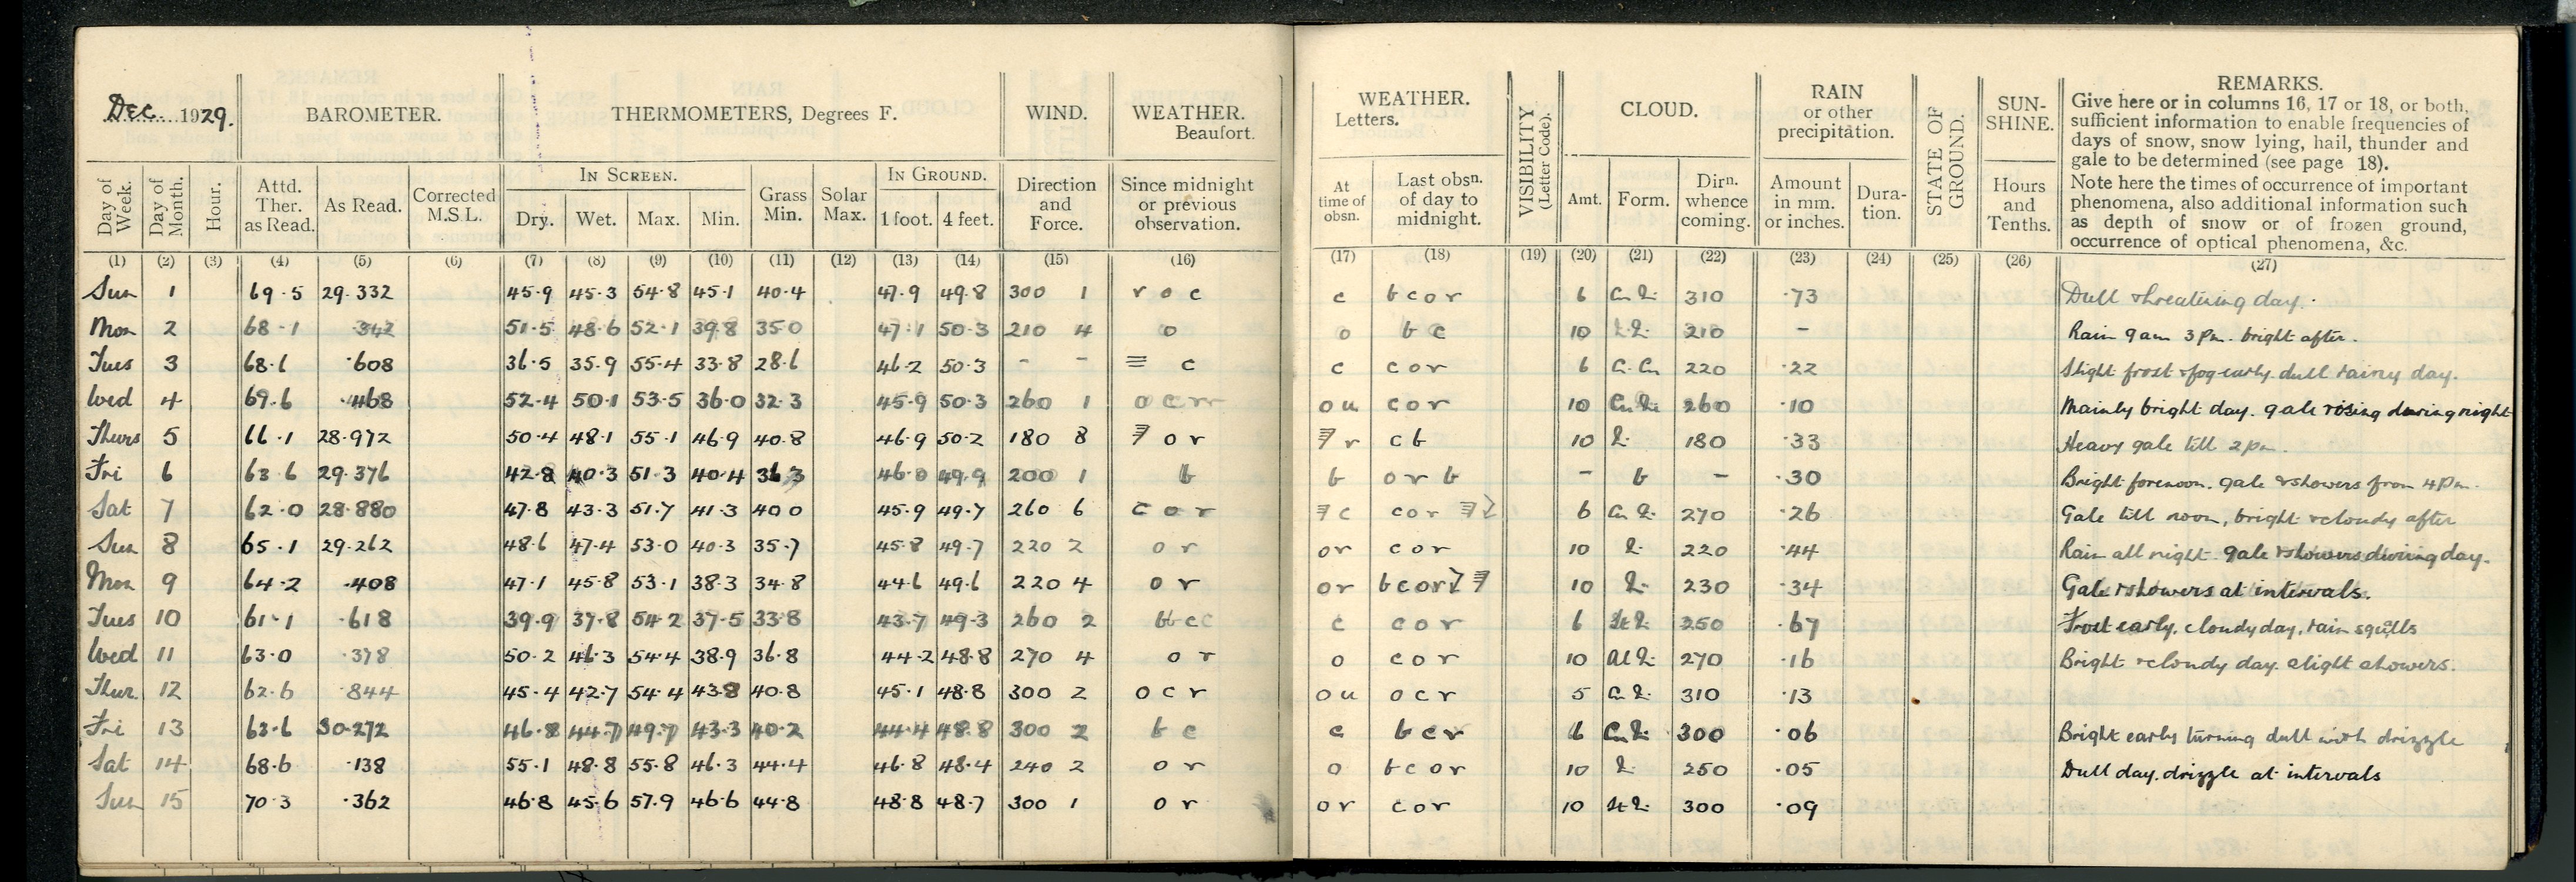 Dec. 1929.
BAROMETER.
THERMOMETERS, Degrees F.
WIND.
WEATHER. Beaufort.
Day of Week.
Day of Month.
Hour.
Attd. Ther. as Read.
As Read.
Corrected M.S.L.
IN SCREEN.
Dry. Wet. Max. Min.
Grass Min.
Solar Max.
IN GROUND.
1 foot. 4 feet.
Direction and Force.
Since midnight or previous observation.
(1) (2) (3) (4) (5) (6) (7) (8) (9) (10) (11) (12) (13) (14) (15) (16)
Sun 1 69.5 29.332 45.9 45.3 54.8 45.1 40.4 47.9 49.8 300 1 r o c
Mon 2 68.1 .342 51.5 48.6 52.1 39.8 35.0 47.1 50.3 210 4 o
Tues 3 68.1 .608 36.5 35.9 55.4 33.8 28.6 46.2 50.3 - - ≡ c
Wed 4 69.6 .468 52.4 50.1 53.5 36.0 32.3 45.9 50.3 260 1 o c r r
Thurs 5 66.1 28.972 50.4 48.1 55.1 46.9 40.8 46.9 50.2 180 8 o r
Fri 6 63.6 29.376 42.8 40.3 51.3 40.4 36.3 46.0 49.9 200 1 b
Sat 7 62.0 28.880 47.8 43.3 51.7 41.3 40.0 45.9 49.7 260 6 c o r
Sun 8 65.1 29.262 48.6 47.4 53.0 40.3 35.7 45.8 49.7 220 2 o r
Mon 9 64.2 .408 47.1 45.8 53.1 38.3 34.8 44.6 49.6 220 4 o r
Tues 10 61.1 .618 39.9 37.8 54.2 37.5 33.8 43.7 49.3 260 2
Wed 11 63.0 .378 50.2 46.3 54.4 38.9 36.8 44.2 48.8 270 4 o r
Thur. 12 62.6 .844 45.4 42.7 54.4 43.8 40.8 45.1 48.8 300 2 o c r
Fri 13 63.6 30.272 46.8 44.7 49.7 43.3 40.2 44.4 48.8 300 2 b c
Sat 14 68.6 .138 55.1 48.8 55.8 46.3 44.4 46.8 48.4 240 2 o r
Sun 15 70.3 .362 46.8 45.6 57.9 46.6 44.8 48.8 48.7 300 1 o r
WEATHER.
Letters.
VISIBILITY (Letter Code).
CLOUD.
RAIN or other precipitation.
STATE OF GROUND.
SUN-SHINE.
REMARKS.
Give here or in columns 16, 17 or 18, or both,
sufficient information to enable frequencies of
days of snow, snow lying, hail, thunder and
gale to be determined (see page 18).
Note here the times of occurrence of important
phenomena, also additional information such
as depth of snow or of frozen ground,
occurrence of optical phenomena, &c.
At time of obsn.
Last obsn. of day to midnight.
Amt.
Form.
Dirn. whence coming.
Amount in mm. or inches.
Dura-tion.
Hours and Tenths.
(17) (18) (19) (20) (21) (22) (23) (24) (25) (26) (27)
c b c o r 6 310 .73 Dull threatening day.
o b c 10 210 - Rain 9 am 3 pm. bright after.
c c o r 6 220 .22 Slight frost & fog early dull rainy day.
o u c o r 10 260 .10 Mainly bright day. gale rising during night
r c b 10 180 .33 Heavy gale till 2 pm.
b o r b - b - .30 Bright forenoon. gale & showers from 4 pm.
c c o r 6 270 .26 Gale till noon, bright & cloudy after
o r c o r 10 220 .44 Rain all night. gale & showers during day.
o r b c o r 10 230 .34 Gale & showers at intervals.
c c o r 6 250 .67 Frost early. cloudy day, rain squalls
o c o r 10 270 .16 Bright & cloudy day. slight showers.
o u o c r 5 310 .13
c b c r 6 300 .06 Bright early turning dull with drizzle
o b c o r 10 250 .05 Dull day. drizzle at intervals
o r c o r 10 300 .09